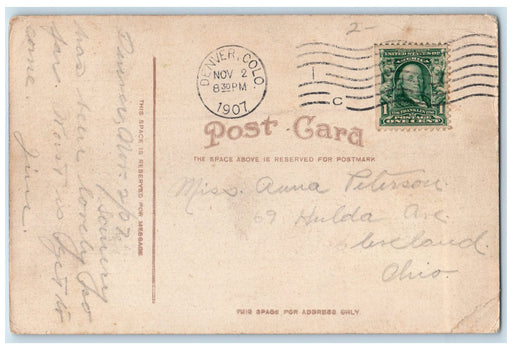 2-
DENVER, COLO.
NOV 2
8 30 PM
1907
C
UNITED STATES OF
AMERICA
1
POSTAGE
ONE CENT
Post Card
THE SPACE ABOVE IS RESERVED FOR POSTMARK
Miss. Anna Peterson.
69 Hulda Ave
Cleveland.
Ohio.
THIS SPACE FOR ADDRESS ONLY.
THIS SPACE IS RESERVED FOR MESSAGE
Denver, Nov-2/07.
has been lovely
far
come. Jim.